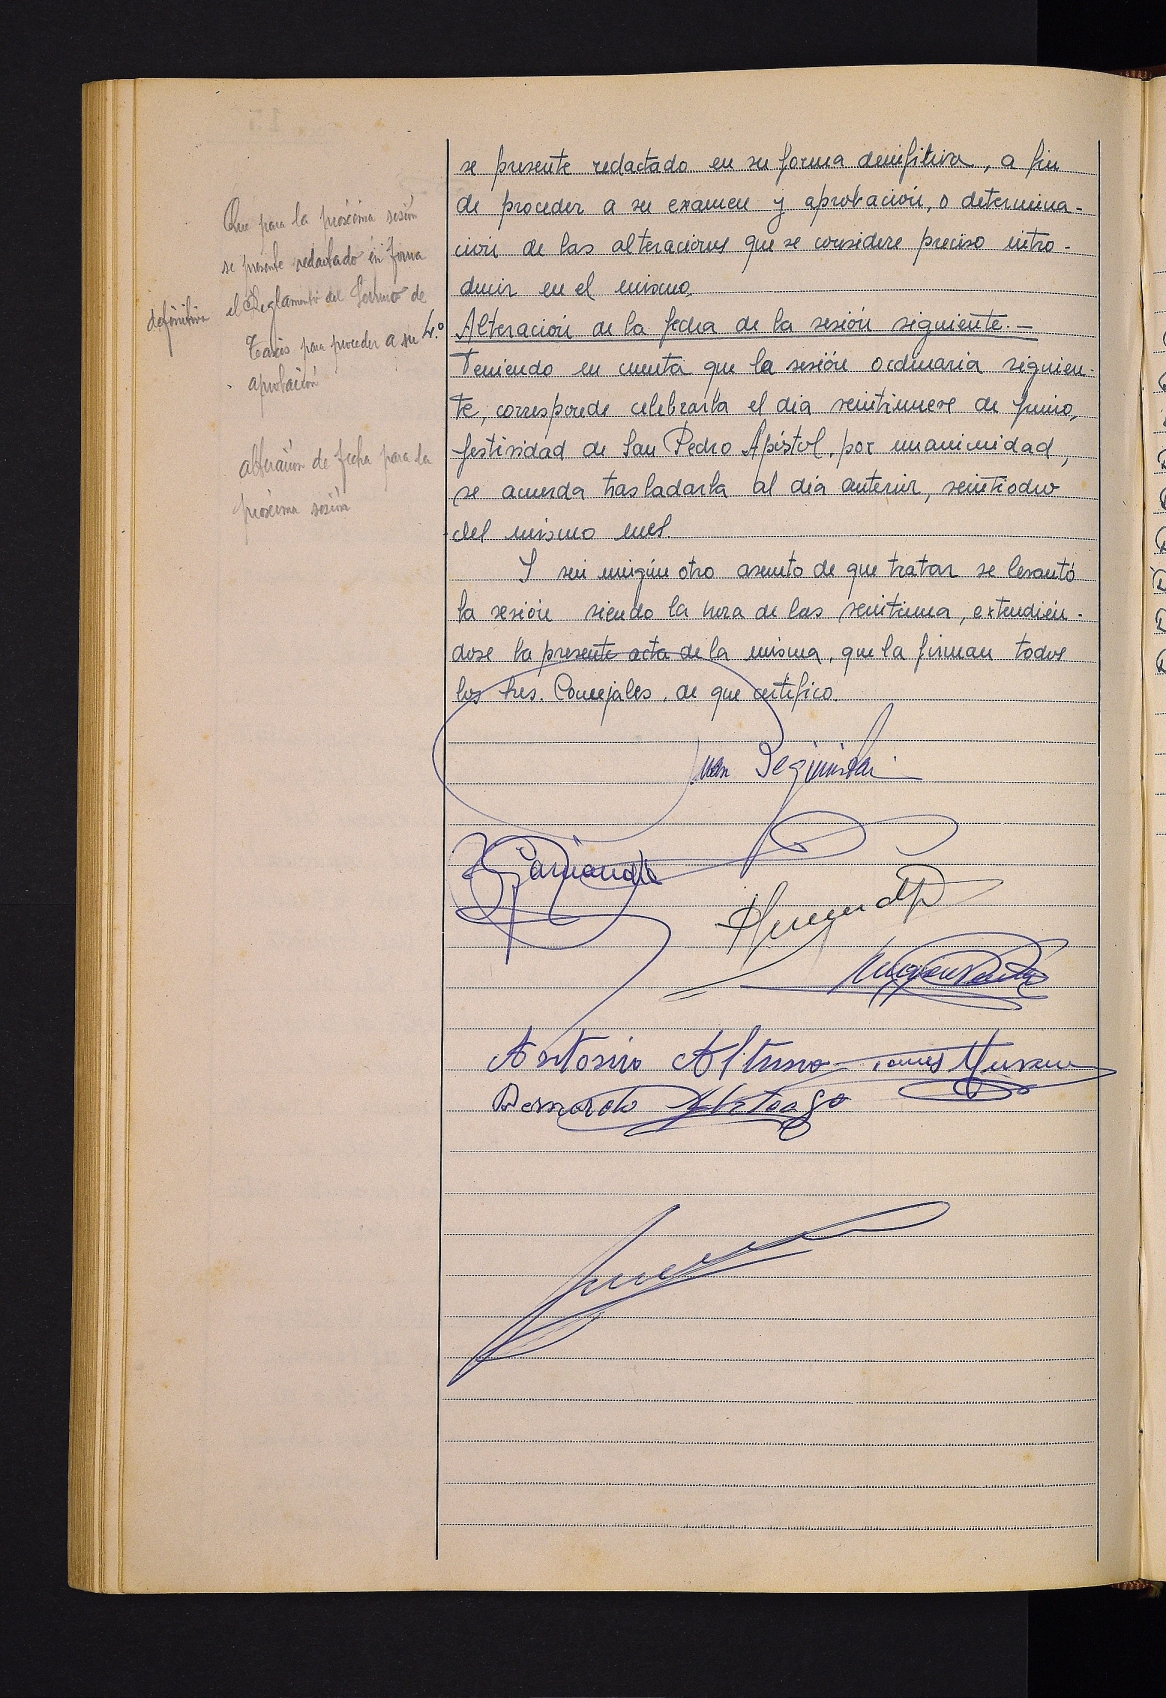 se presente redactado en su forma denifitiva, a fin
de proceder a su examen y aprobación, o determina-
ción de las alteraciones que se considere preciso intro-
ducir en el mismo.
4.º Alteración de la fecha de la sesión siguiente.—
Teniendo en cuenta que la sesión ordinaria siguien-
te, corresponde celebrarla el día veintinueve de Junio,
festividad de San Pedro Apóstol, por unanimidad,
se acuerda trasladarla al día anterior, veintiocho
del mismo mes.
Y sin ningún otro asunto de que tratar se levantó
la sesión siendo la hora de las veintiuna, extendién-
dose la presente acta de la misma, que la firman todos
los Sres. Concejales, de que certifico.
Que para la proxima sesión
se presente redactado en forma
definitiva
el Reglamento del Servicio de
Taxis para proceder a su
aprobación
alteración de fecha para la
proxima sesión
Juan
Antonio Altuna
Bernardo